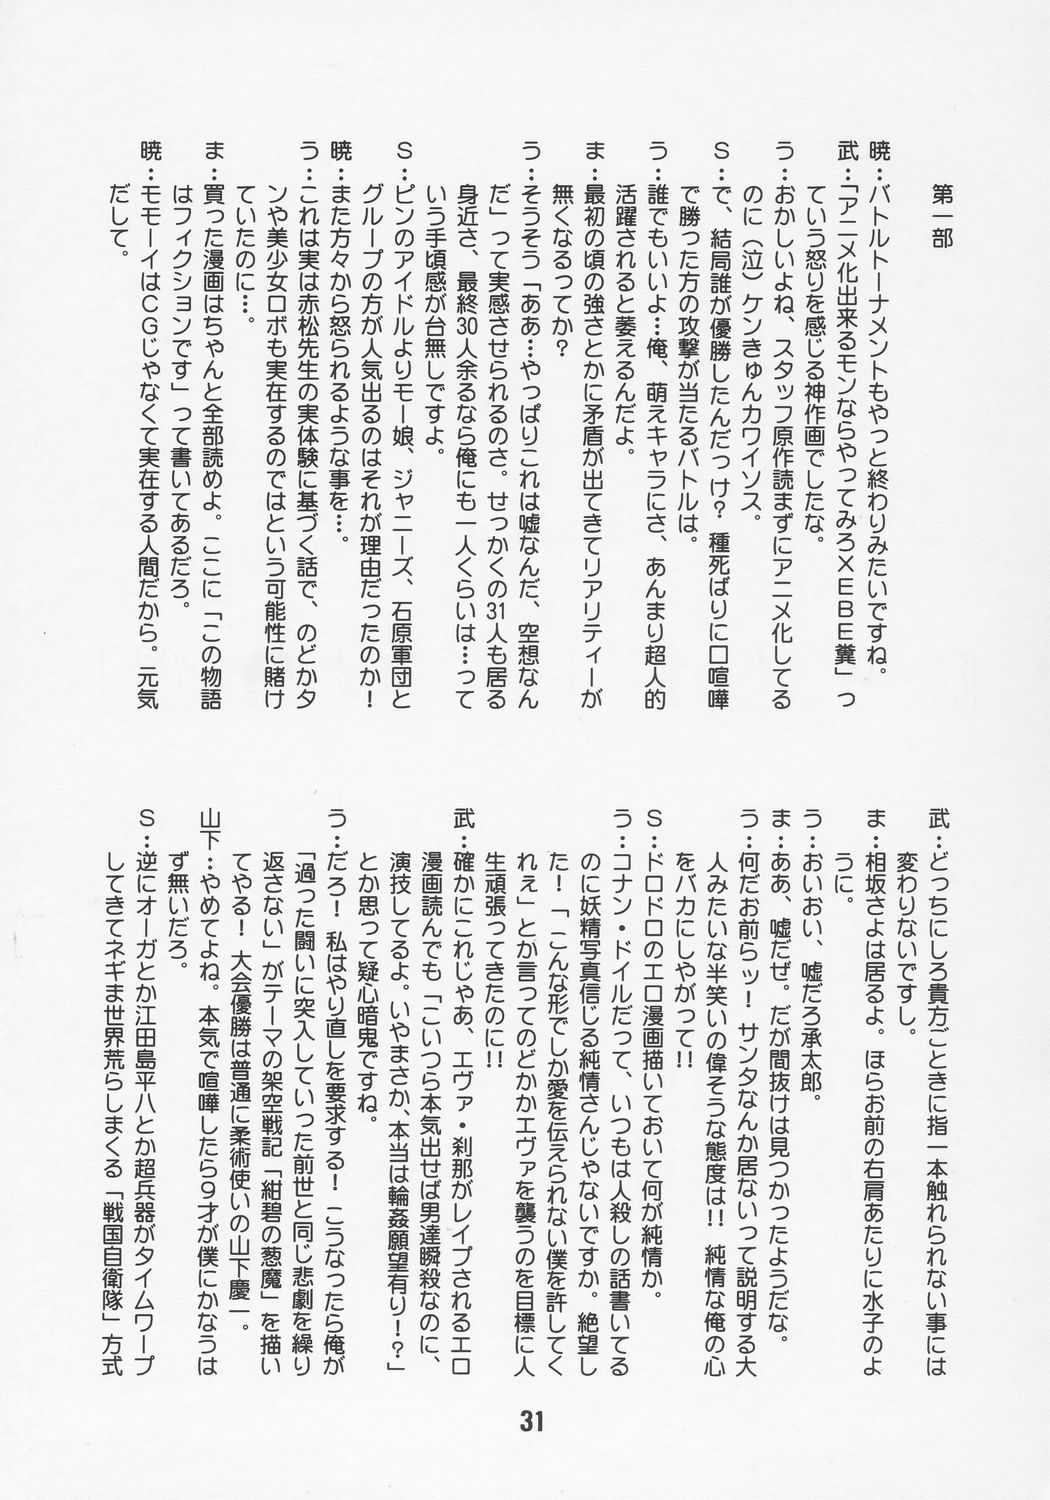 第一部
暁…バトルトーナメントもやっと終わりみたいですね。
武…「アニメ化出来るモンならやってみろXEBE糞」っ
ていう怒りを感じる神作画でしたな。
う…おかしいよね、スタッフ原作読まずにアニメ化してる
のに(泣)ケンきゅんカワイソス。
S…で、結局誰が優勝したんだっけ? 種死ばりに口喧嘩
で勝った方の攻撃が当たるバトルは。
う…誰でもいいよ…俺、萌えキャラにさ、あんまり超人的
活躍されると萎えるんだよ。
ま…最初の頃の強さとかに矛盾が出てきてリアリティーが
無くなるってか?
う…そうそう「ああ…やっぱりこれは嘘なんだ、空想なん
だ」って実感させられるのさ。せっかくの31人も居る
身近さ、最終30人余るなら俺にも一人くらいは…って
いう手頃感が台無しですよ。
S…ピンのアイドルよりモー娘、ジャニーズ、石原軍団と
グループの方が人気出るのはそれが理由だったのか!
暁…また方々から怒られるような事を…。
う…これは実は赤松先生の実体験に基づく話で、のどかタ
ンや美少女ロボも実在するのではという可能性に賭け
ていたのに…。
ま…買った漫画はちゃんと全部読めよ。ここに「この物語
はフィクションです」って書いてあるだろ。
暁…モモーイはCGじゃなくて実在する人間だから。元気
だして。
武…どっちにしろ貴方ごときに指一本触れられない事には
変わりないですし。
ま…相坂さよは居るよ。ほらお前の右肩あたりに水子のよ
うに。
う…おいおい、嘘だろ承太郎。
ま…ああ、嘘だぜ。だが間抜けは見つかったようだな。
う…何だお前らッ! サンタなんか居ないって説明する大
人みたいな半笑いの偉そうな態度は!! 純情な俺の心
をバカにしやがって!!
S…ドロドロのエロ漫画描いておいて何が純情か。
う…コナン・ドイルだって、いつもは人殺しの話書いてる
のに妖精写真信じる純情さんじゃないですか。絶望し
た!「こんな形でしか愛を伝えられない僕を許してく
れぇ」とか言ってのどかかエヴァを襲うのを目標に人
生頑張ってきたのに!!
武…確かにこれじゃあ、エヴァ・刹那がレイプされるエロ
漫画読んでも「こいつら本気出せば男達瞬殺なのに、
演技してるよ。いやまさか、本当は輪姦願望有り!?」
とか思って疑心暗鬼ですね。
う…だろ! 私はやり直しを要求する! こうなったら俺が
「過った闘いに突入していった前世と同じ悲劇を繰り
返さない」がテーマの架空戦記「紺碧の葱魔」を描い
てやる! 大会優勝は普通に柔術使いの山下慶一。
山下…やめてよね。本気で喧嘩したら9才が僕にかなうは
ず無いだろ。
S…逆にオーガとか江田島平八とか超兵器がタイムワープ
してきてネギま世界荒らしまくる「戦国自衛隊」方式
31